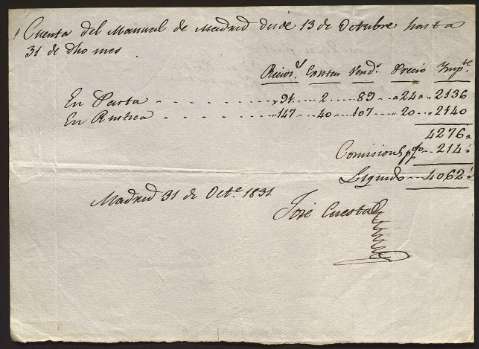 Cuenta del Manual de Madrid desde 13 de Octubre hasta
31 de dho mes
Recivs. Existen Vends. Precio Impte.
En Pasta 91 2 89 a 24 2136
En Rustica 147 40 107 20 2140
4276
Comision 5 p% 214
Liquido 4062
Madrid 31 de Octe. 1831
José Cuesta